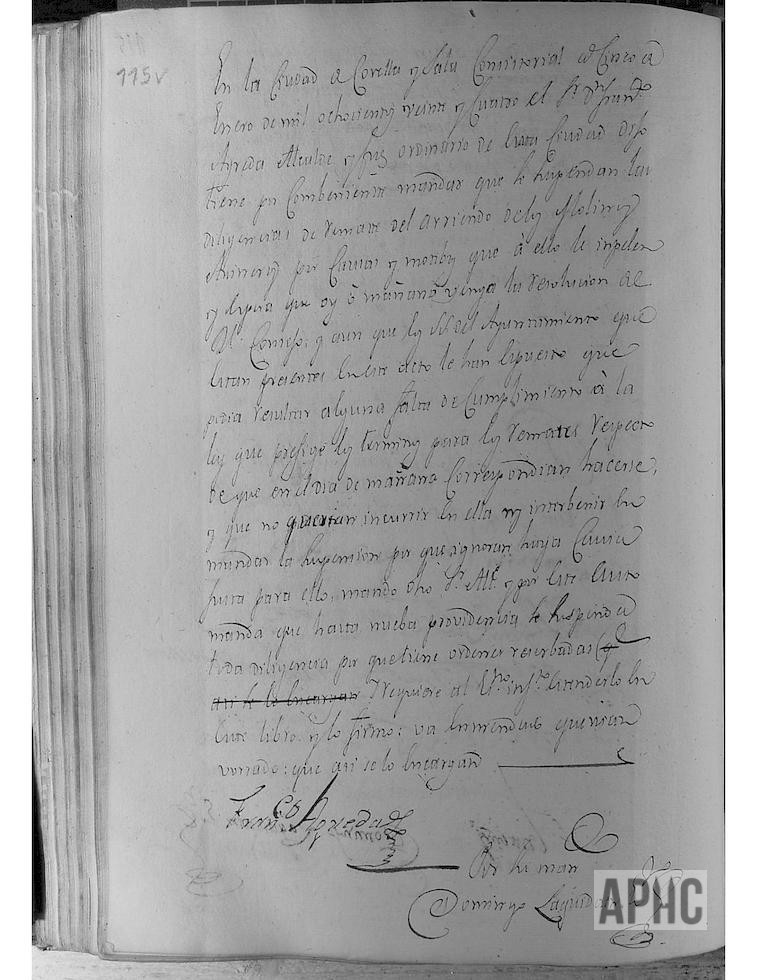 115v
En la Ciudad de Corella y Sala Consistorial a Cinco de
Enero de mil ochocientos veinte y Cuatro el Sr. Dn. Franco.
Agreda Alcalde y Juez ordinario de Esta Ciudad dijo
tiene por Combeniente mandar que se suspendan las
diligencias de remate del arriendo de los Molinos
Arineros por Causas y motibos que a ello le inpelen
y espera que oy o mañana venga la resolucion del
Rl. Consejo, y aun que los SS. del Ayuntamiento que
Estan presentes En este acto le han Espuesto que
podia resultar alguna falta de Cumplimiento a la
ley que prefige los terminos para los remates respecto
de que en el dia de mañana Correspondian hacerse,
y que no querian incurrir En ella ni interbenir En
mandar la suspension por que ignoran haya Causa
justa para ello, mando dho Sr. Alle. y por Este Auto
manda que hasta nueba providencia se suspenda
toda diligencia por que tiene ordenes reserbadas (q
asi se lo Encargan Y requiere al Esno. infto. Estenderlo En
Este libro y lo firmo: va Enmendado querian
vorrado: que asi se lo Encargan
Franco. Agreda
Por su man
Domingo
APHC